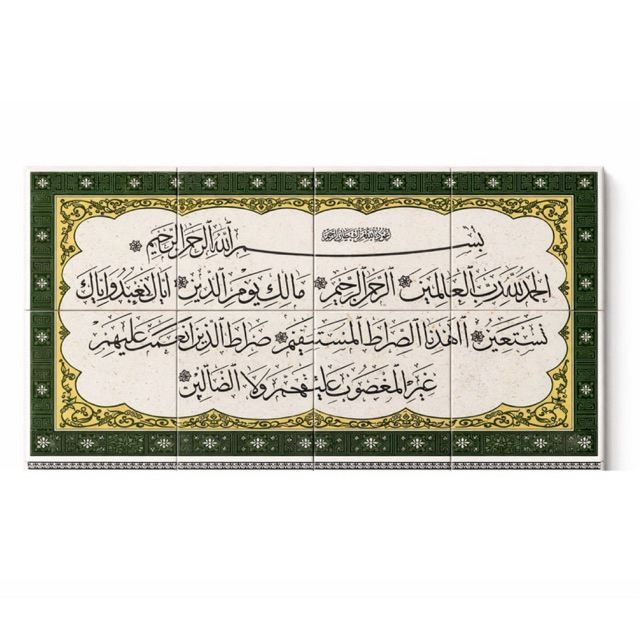 اعوذ بالله من الشيطان الرجيم
بسم الله الرحمن الرحيم
الحمد لله رب العالمين الرحمن الرحيم مالك يوم الدين اياك نعبد واياك
نستعين اهدنا الصراط المستقيم صراط الذين انعمت عليهم
غير المغضوب عليهم ولا الضالين